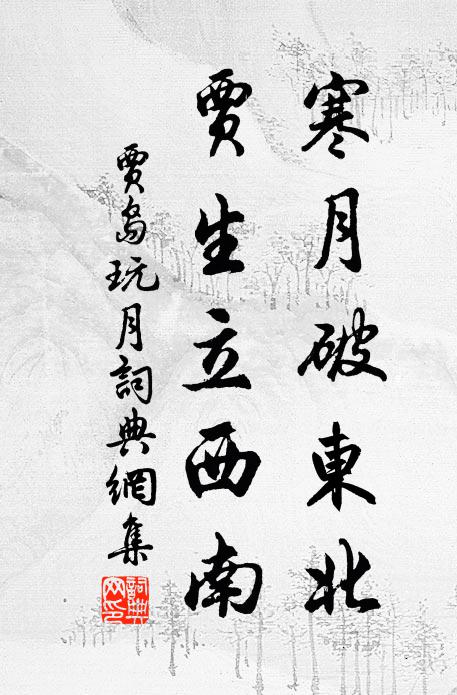 寒月破東北
賈生立西南
賈島玩月詞典網集